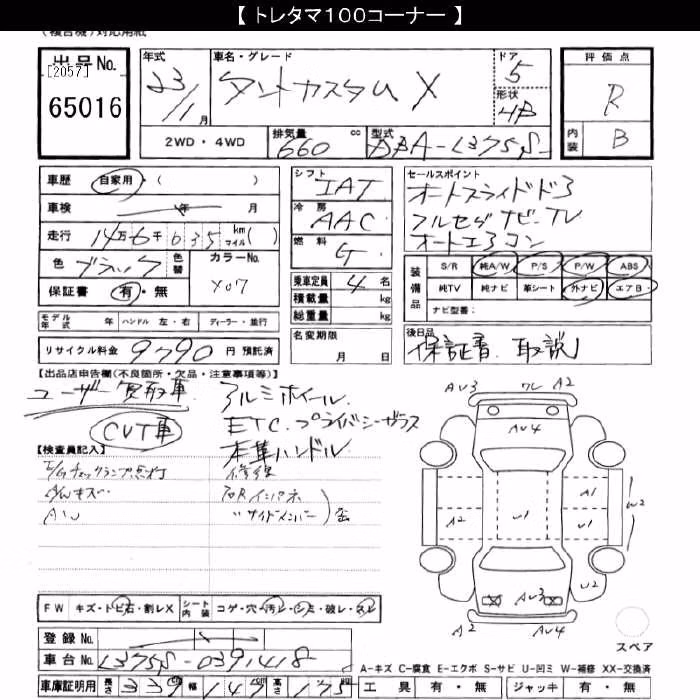 【 トレタマ１００コーナー 】
(複合機)対応用紙
出品No.
[2057]
65016
年式 23/11月
車名・グレード タントカスタム X
ドア 5
形状 4B
評価点 R
内装 B
2WD・4WD
排気量 660 cc
型式 DBA-L375S
車歴 自家用・( )
車検 年 月
走行 14万6千035 km マイル( )
色 ブラック 色替 カラーNo. X07
保証書 有・無
モデル年式 年 ハンドル 左・右 ディーラー・並行
リサイクル料金 9790 円 預託済
シフト IAT
冷房 AAC
燃料 G
乗車定員 4 名
積載量 kg
総重量 kg
名変期限 月 日
セールスポイント
オートスライドドア
フルセグナビ-TV
オートエアコン
装備品 S/R 純A/W P/S P/W ABS
純TV 純ナビ 革シート 外ナビ エアB
ナビ型番:
後日品
保証書 取説
【出品店申告欄(不良箇所・欠品・注意事項等)】
ユーザー買取車
CVT車
アルミホイール
ETC.プライバシーガラス
本革ハンドル
【検査員記入】
E/Gチェックランプ点灯
A/Wキズ
修復
右Rインパネ
〃サイドメンバー) 歪
FW キズ・トビ石・割レX シート内装 コゲ・穴・汚レ・シミ・破レ・スレ
登録 No.
車台 No. L375S-0391418
車庫証明用 長さ 339 cm 幅 147 cm 高さ 175
AU3 ワレ A2
AU4
A1
W2
A2
U1
U2
AU3
A2 AU4
スペア
A-キズ C-腐食 E-エクボ S-サビ U-凹ミ W-補修 XX-交換済
工具 有・無 ジャッキ 有・無